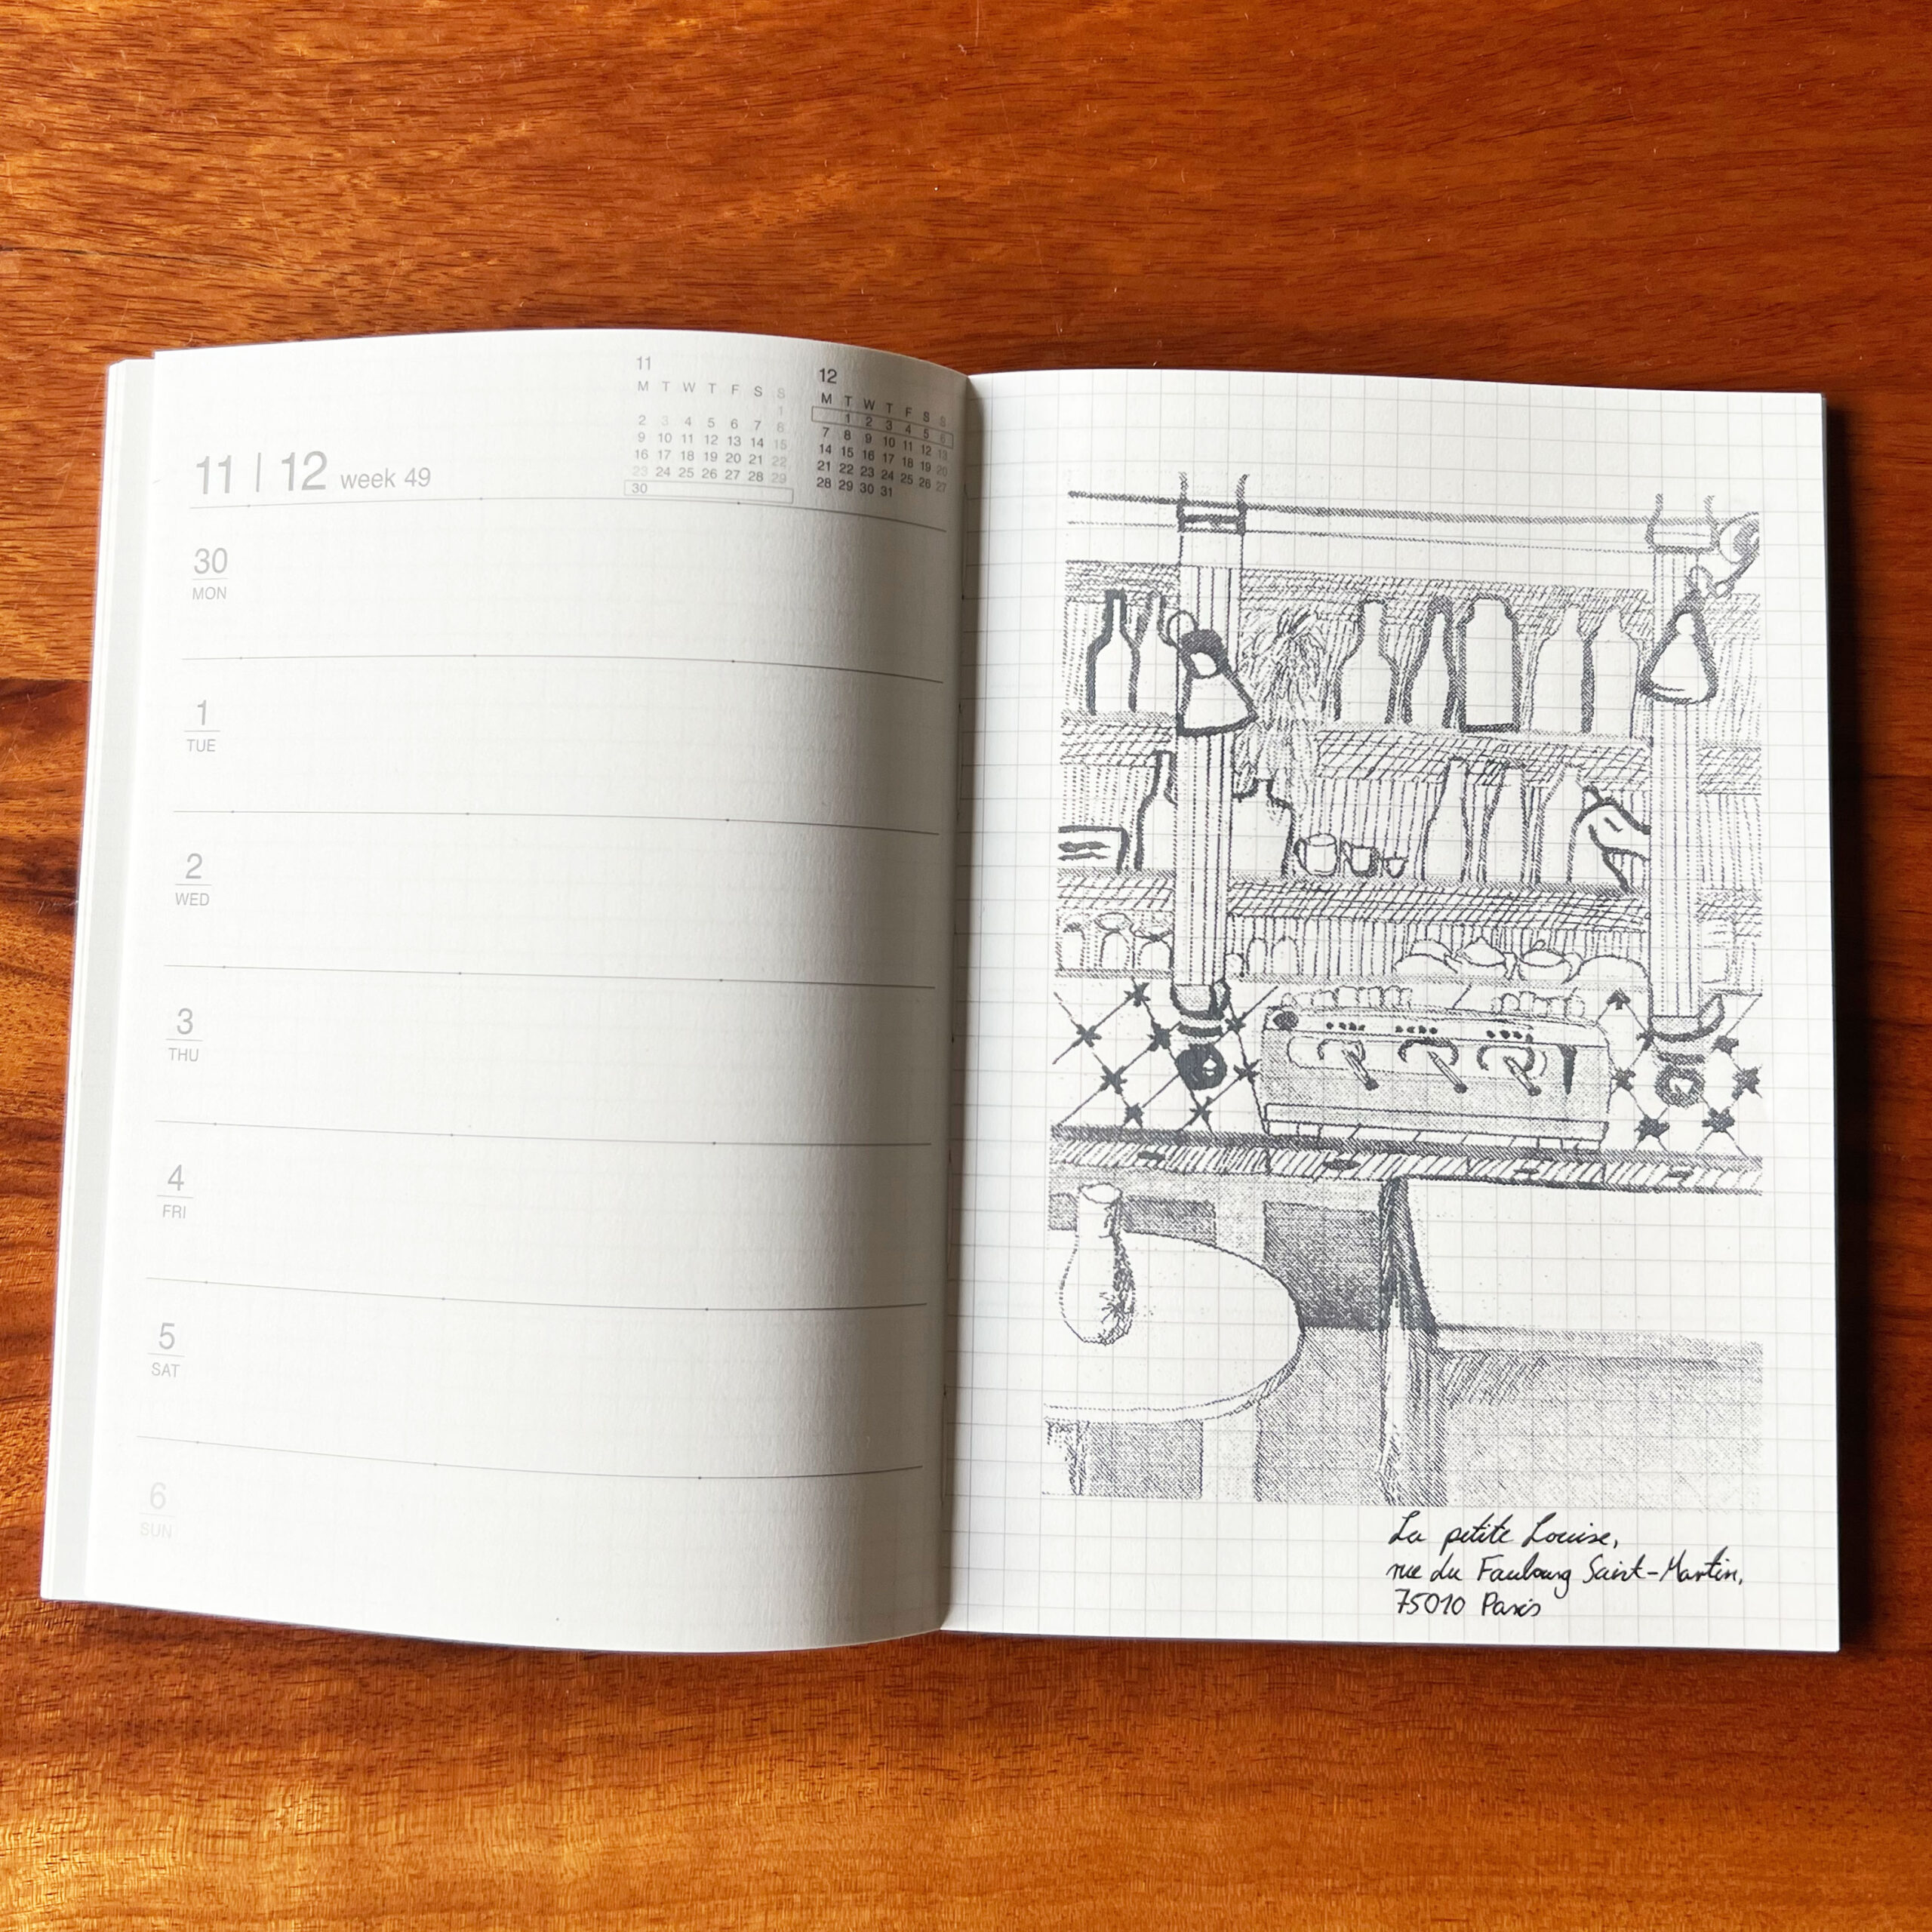 11 | 12 week 49
11
M T W T F S S
1
2 3 4 5 6 7 8
9 10 11 12 13 14 15
16 17 18 19 20 21 22
23 24 25 26 27 28 29
30
12
M T W T F S S
1 2 3 4 5 6
7 8 9 10 11 12 13
14 15 16 17 18 19 20
21 22 23 24 25 26 27
28 29 30 31
30
MON
1
TUE
2
WED
3
THU
4
FRI
5
SAT
6
SUN
La petite Louise,
rue du Faubourg Saint-Martin,
75010 Paris